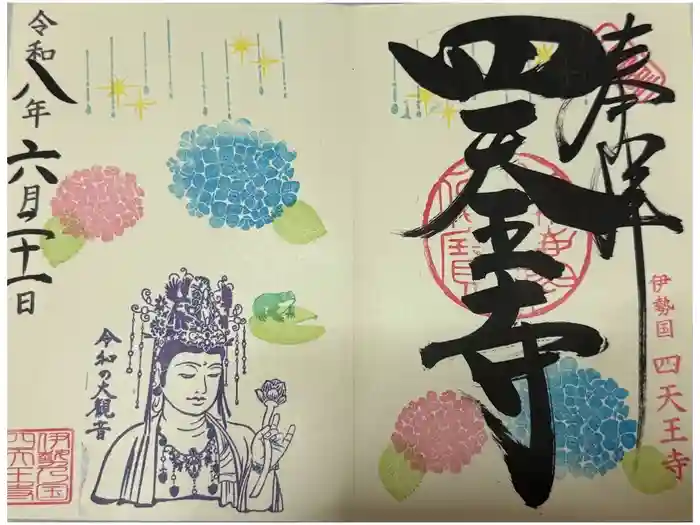 奉拝
四天王寺
伊勢国 四天王寺
令和八年六月二十一日
令和の大観音
伊勢乃国
四天王寺